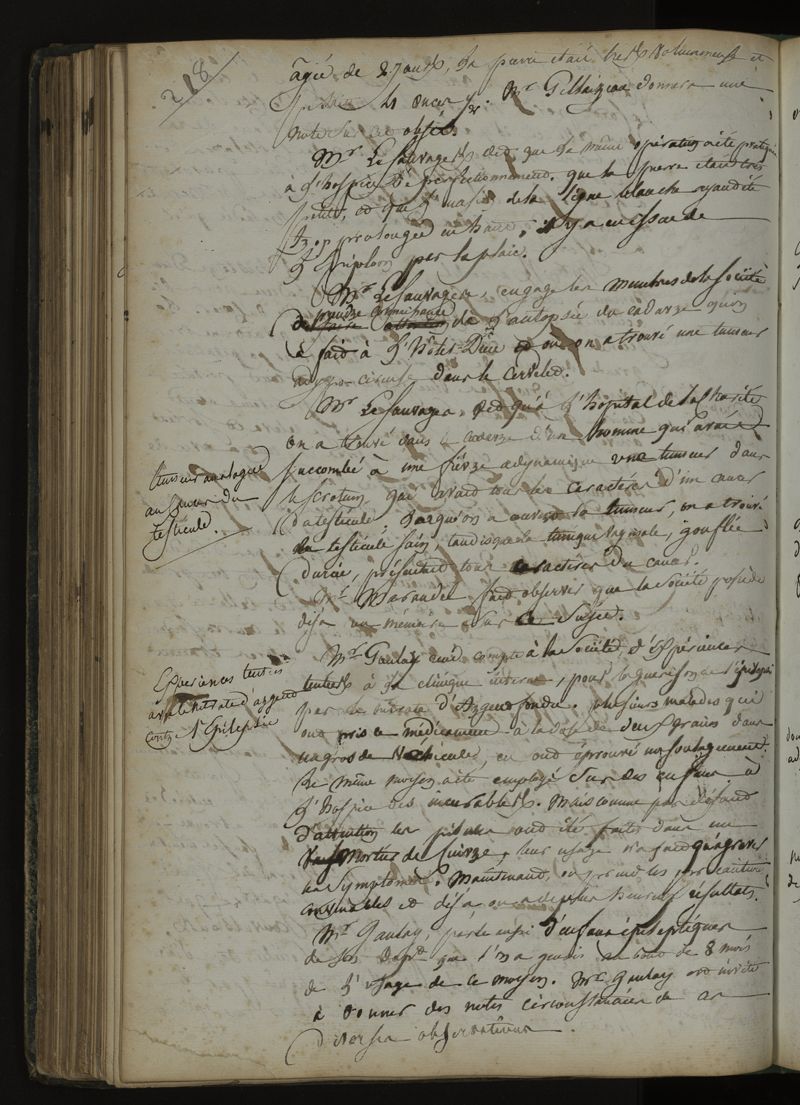 218
âgé de 27 ans, la pierre était très volumineuse et
4 onces ʒ. Mr. donnera une
note sur cet objet.
Mr. Lesauvage dit que la même opération a été pratiquée
à l'hospice de perfectionnement, que la pierre était très
petite, et que l'incision de la ligne blanche ayant été
trop prolongée en haut, il y a eu issue de
l'épiploon par la plaie.
Mr. Lesauvage engage les membres de la Société
à prendre connaissance de l'autopsie du cadavre qu'on
a fait à l'hôtel Dieu et où on a trouvé une tumeur
dans le cervelet.
Mr. Lesauvage dit qu'à l'hôpital de la charité
on a trouvé dans le cadavre d'un homme qui avait
succombé à une fièvre adynamique une tumeur dans
le scrotum qui avait tous les caractères d'un cancer
du testicule; lorsqu'on a ouvert la tumeur, on a trouvé
le testicule sain, tandis que la tunique vaginale, gonflée
durcie, présentait tous les caractères du cancer.
Mr. fait observer que la société possède
déjà un mémoire sur ce sujet.
tumeur analogue
au cancer du
testicule.
Mr. rend compte à la Société, d'expériences
tentées à la clinique interne, pour la guérison de l'épilepsie
par le nitrate d'Argent fondu. plusieurs malades qui
ont pris ce médicament à la dose de deux grains dans
un gros de véhicule, en ont éprouvé du soulagement.
Le même moyen a été employé sur des enfans à
l'hospice des incurables. Mais comme par défaut
d'attention les pilules ont été faites dans un
mortier de cuivre, leur usage n'a fait qu'aggraver
les symptômes. Maintenant, on prend les précautions
convenables et déjà on a de plus heureux résultats.
Expériences tentées
avec le nitrate d'argent
contre l'Epilepsie
Mr. parle aussi d'enfans épileptiques
de son Dépt. que l'on a guéris au bout de 8 mois
de l'usage de ce moyen. Mr. est invité
à donner des notes circonstanciées de ces
diverses observations.